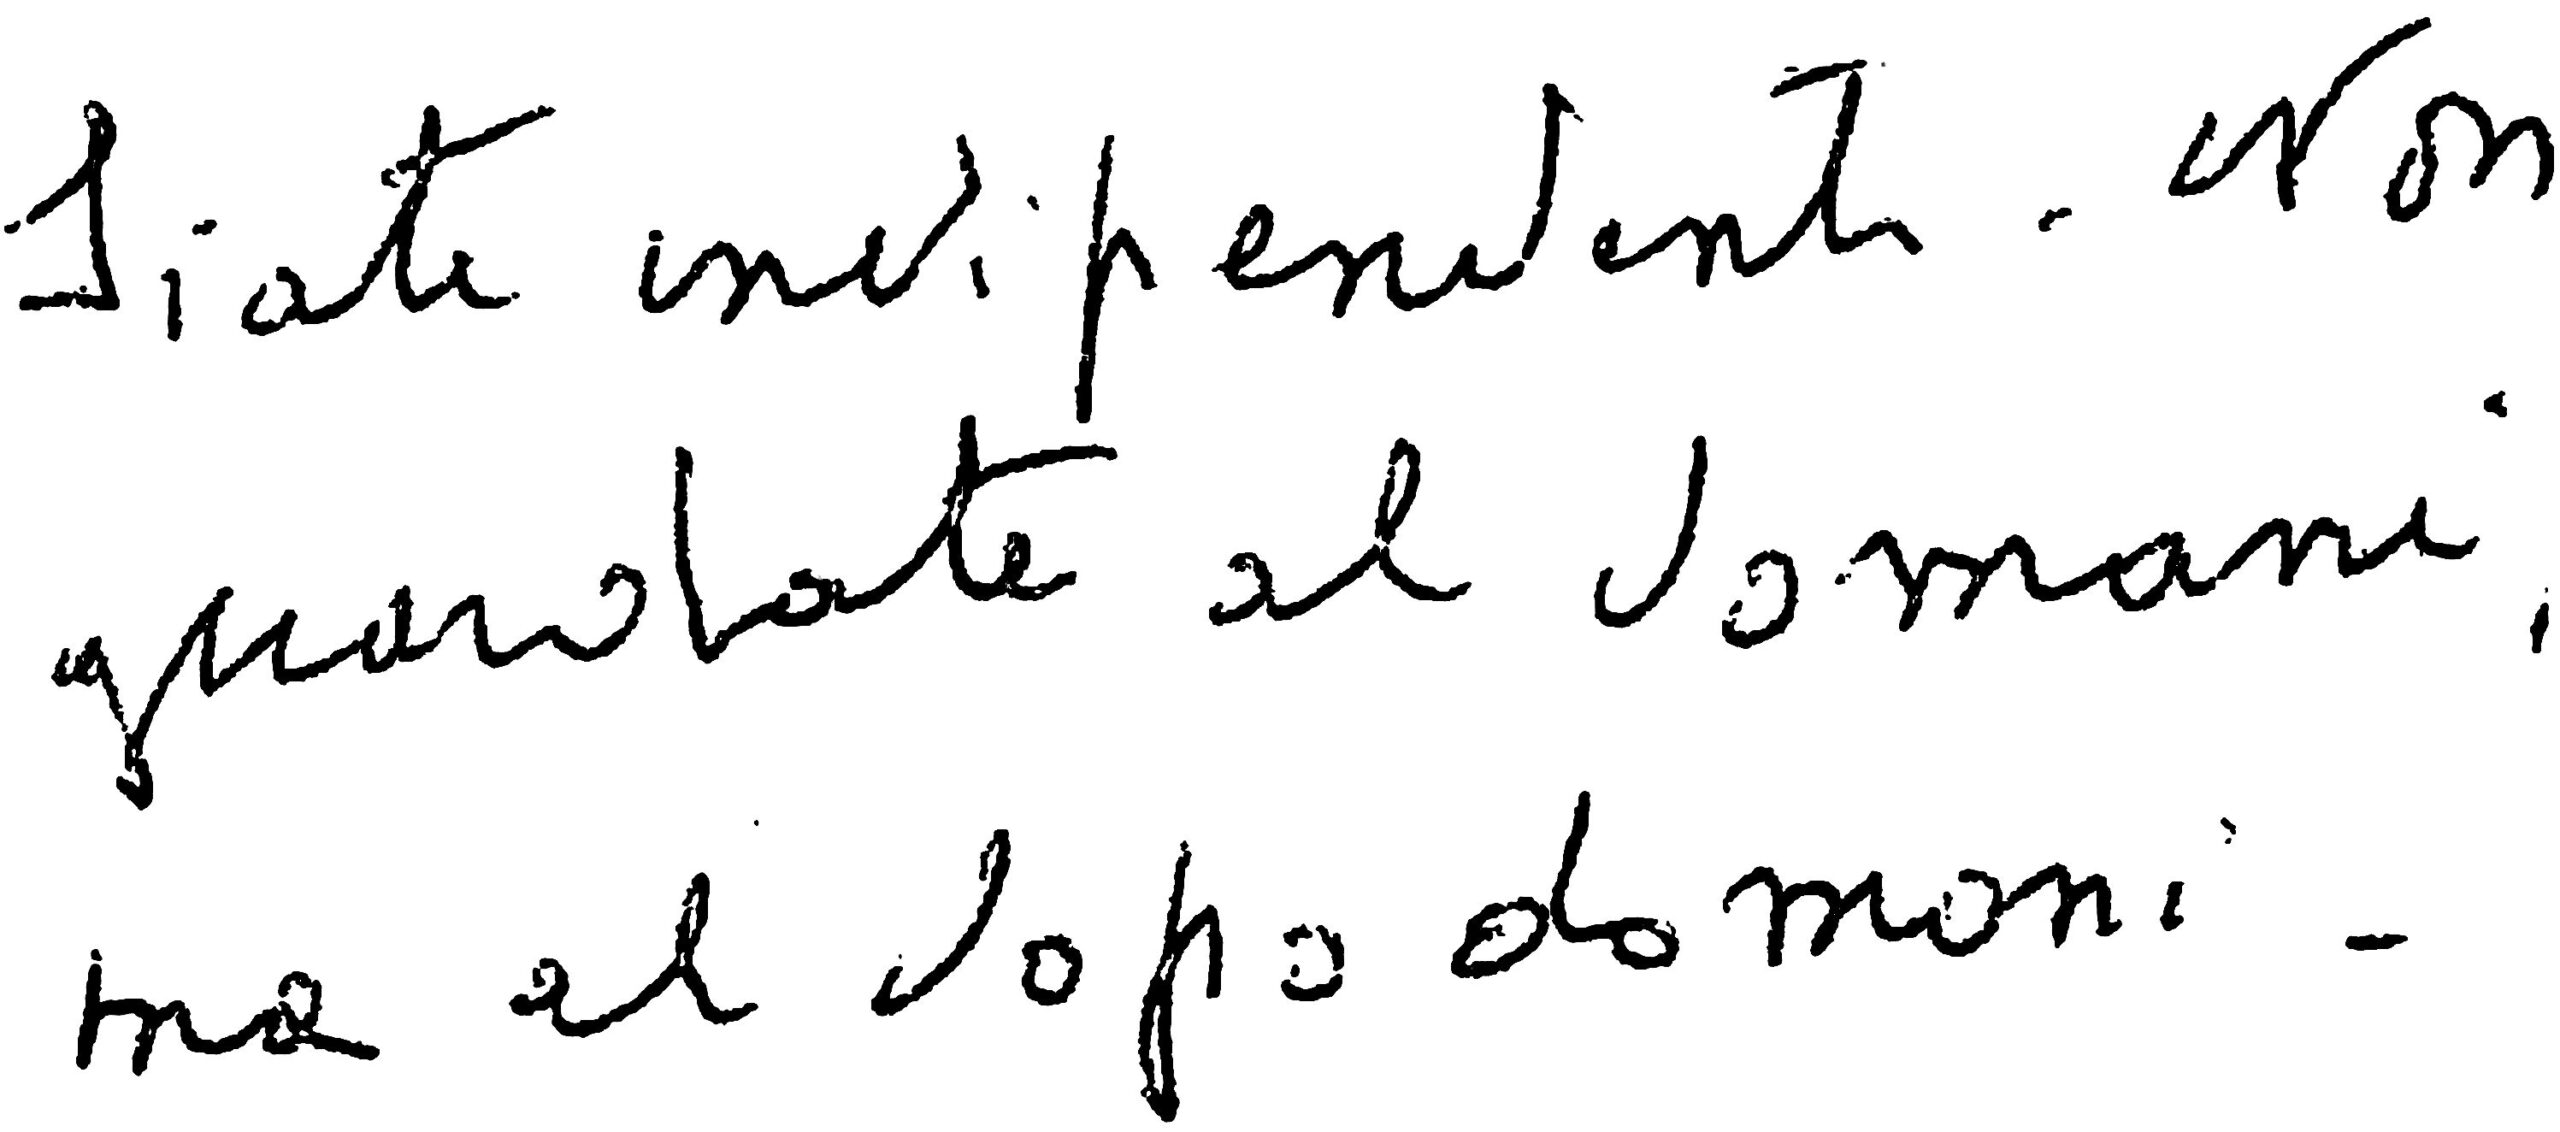 Siate indipendenti - Non
guardate al domani,
ma al dopo domani -